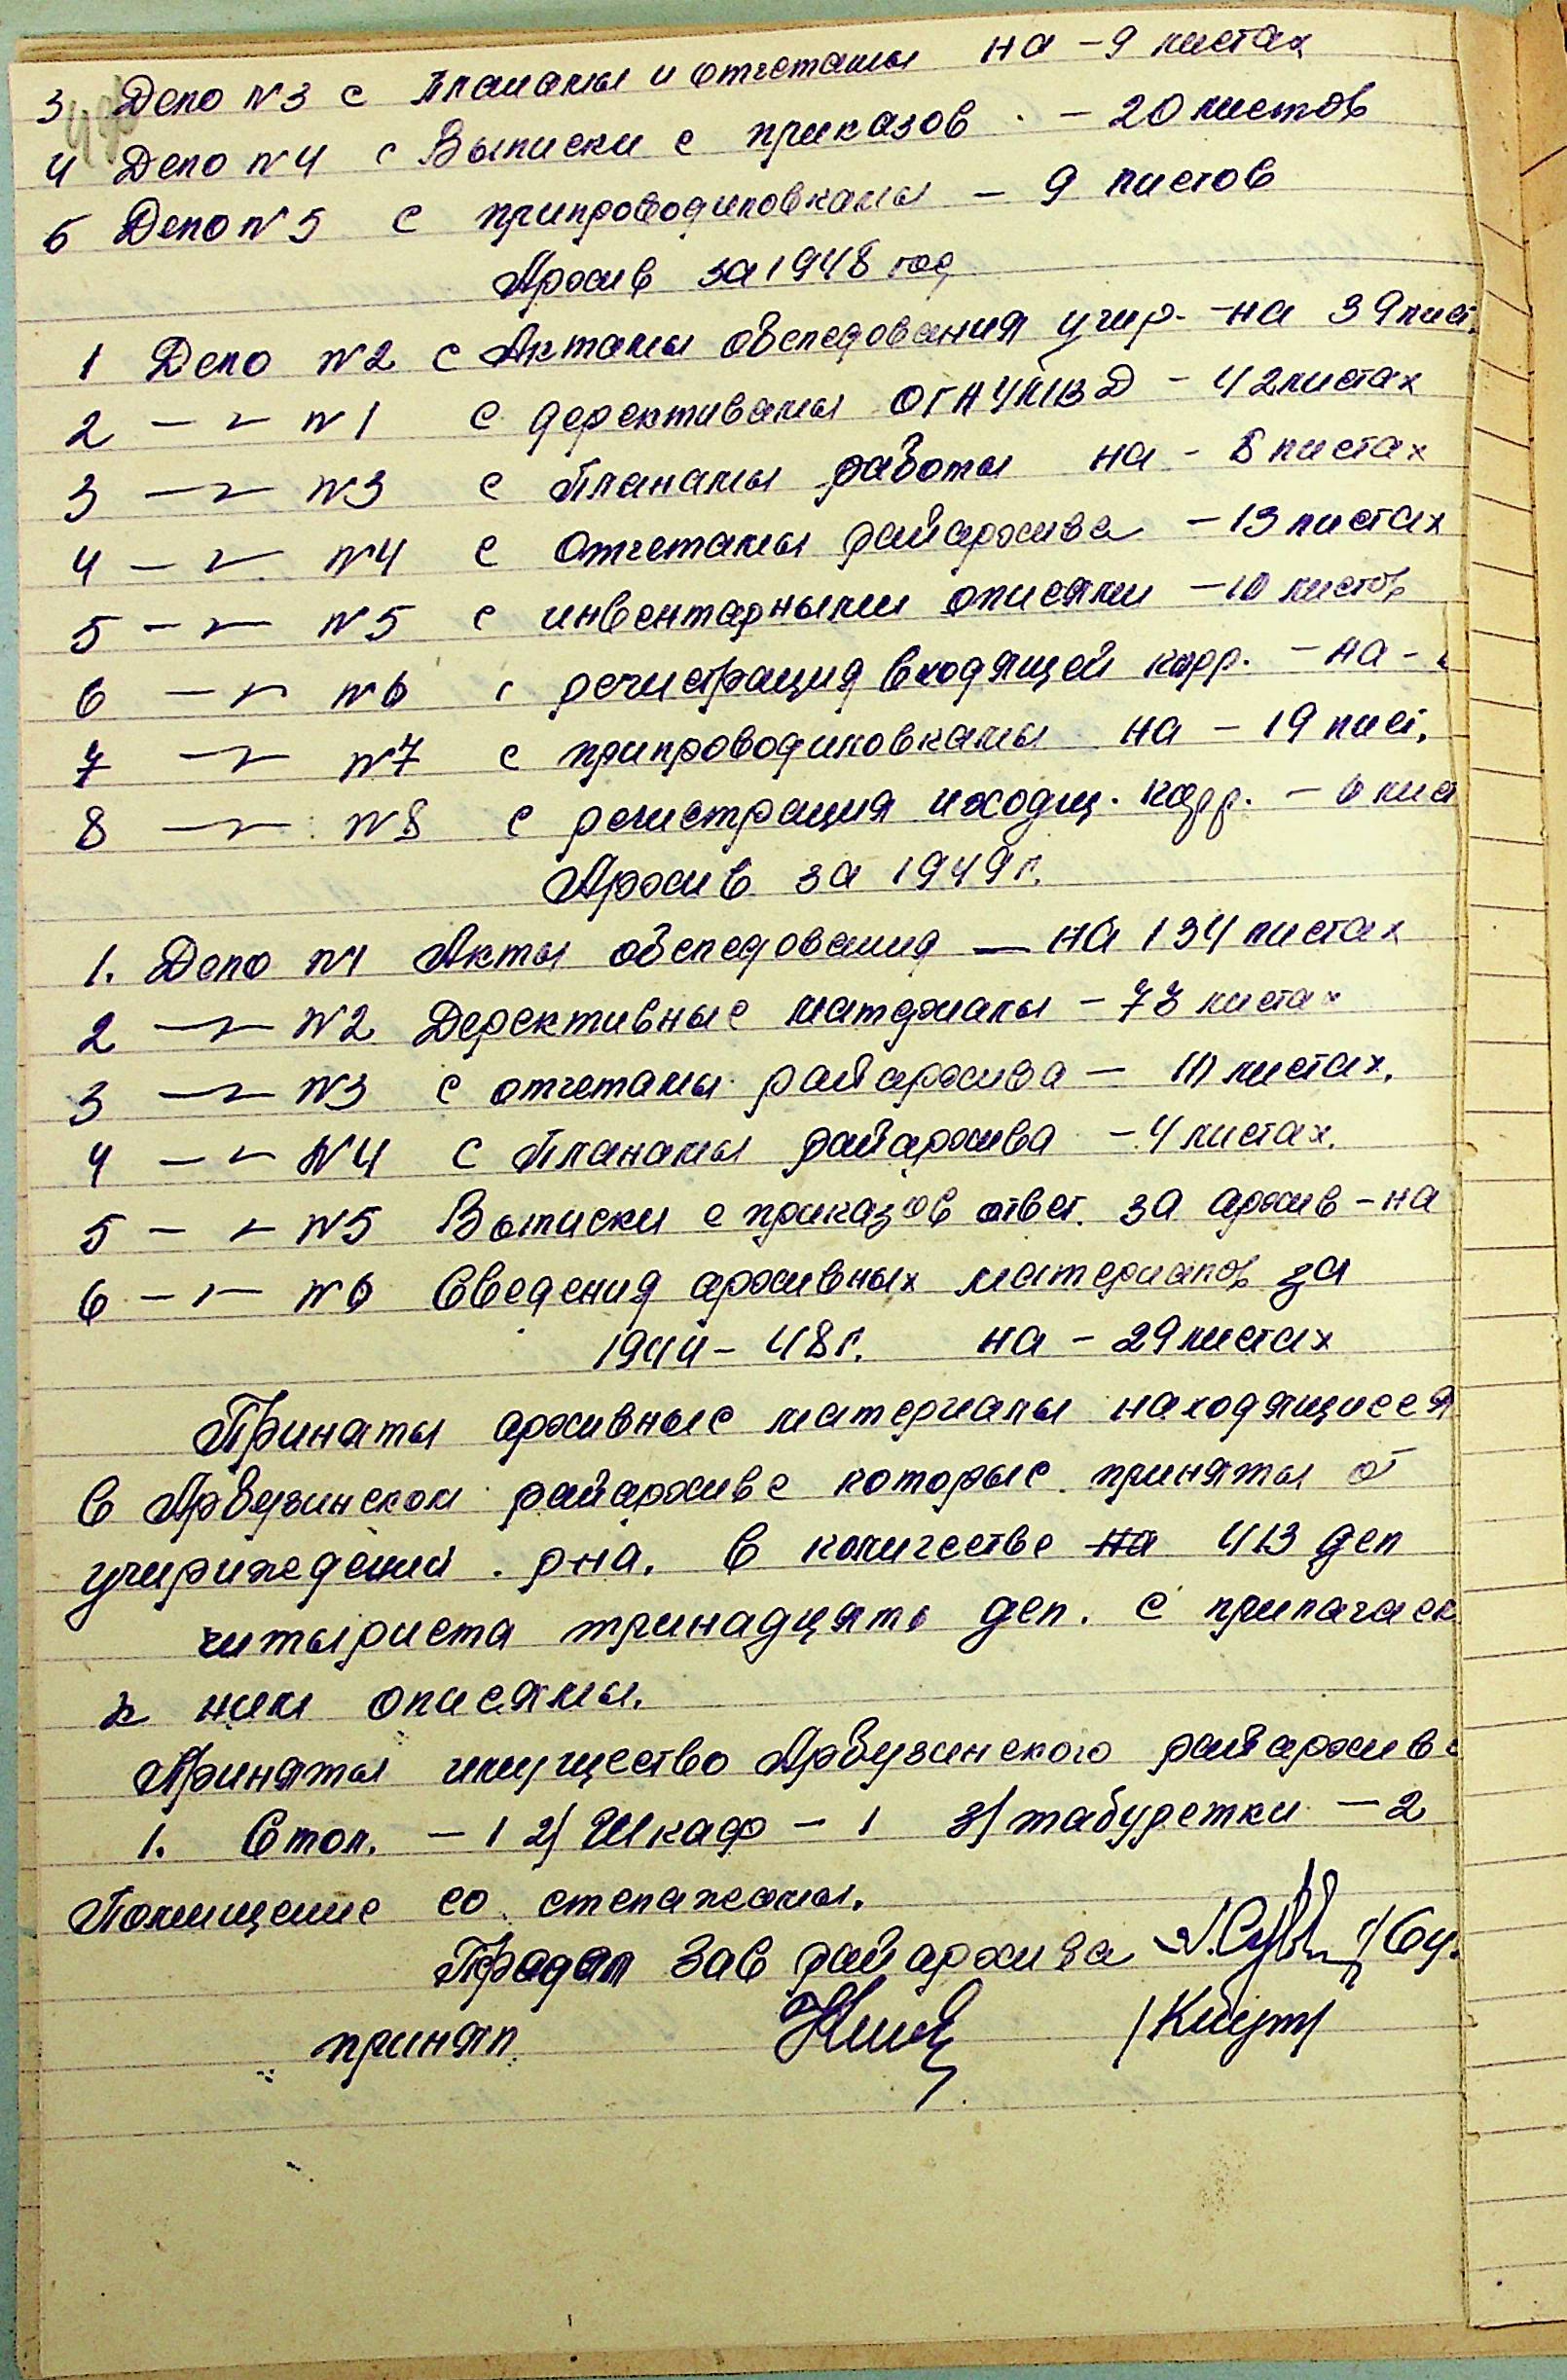 3 Дело №3 с планамы и отчетамы на - 9 листах
4 Дело №4 с Выписки с приказов - 20 листов
5 Дело №5 с припроводиловкамы - 9 листов
Архив за 1948 год
1 Дело №2 с Актамы обследования учир. - на 39 лист.
2 -"- №1 с деректывамы ОГАУМВД - 42 листах
3 -"- №3 с Планамы работы на - 8 листах
4 -"- №4 с отчетамы райархива - 13 листах
5 -"- №5 с инвентарными описями - 10 листов
6 -"- №6 с регистрация входящей корр. - на -
7 -"- №7 с припроводиловкамы на - 19 лист.
8 -"- №8 с регистрация иходящ. корр. - 6 лис
Архив за 1949 г.
1. Дело №1 Акты обследования - на 134 листах
2 -"- №2 Деректывные материалы - 73 листах
3 -"- №3 с отчетамы райархива - 10 листах.
4 -"- №4 с Планамы райархива - 4 листах.
5 -"- №5 Выписки с приказов ответ. за архив - на
6 -"- №6 Сведения архивных материалов за
1944 - 48 г. на - 29 листах
Принаты архивные материалы находящиеся
в Арбузинском райархиве которые приняты от
учириждений р-на. в количестве на 413 дел
читыриста тринадцять дел. с прилагаем
к ним описямы.
Приняты имущество Арбузинского райархив
1. Стол. - 1 2/ Шкаф - 1 3/ табуретки - 2
Помищение со стелажамы.
Продал Зав райархива
принял